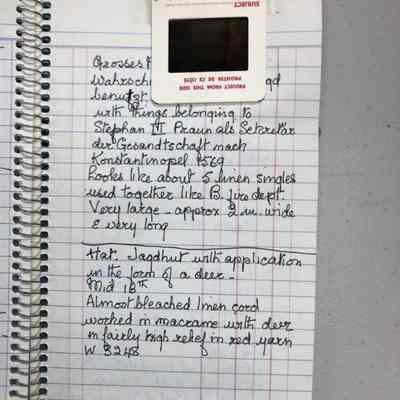 SUBJECT
PROJECT FROM THIS SIDE
PROJETER DE CE CÔTÉ
Grosses
Wahrsch
benutzt.
with things belonging to
Stephan III Praun als Sekretär
der Gesandtschaft nach
Konstantinopel 1569
Looks like about 5 linen singles
used together like B. fire dept.
Very large - approx 2 in. wide
& very long
Hat. Jagdhut with application
in the form of a deer -
Mid 18th
Almost bleached linen cord
worked in macrame with deer
in fairly high relief in red yarn
W 3248